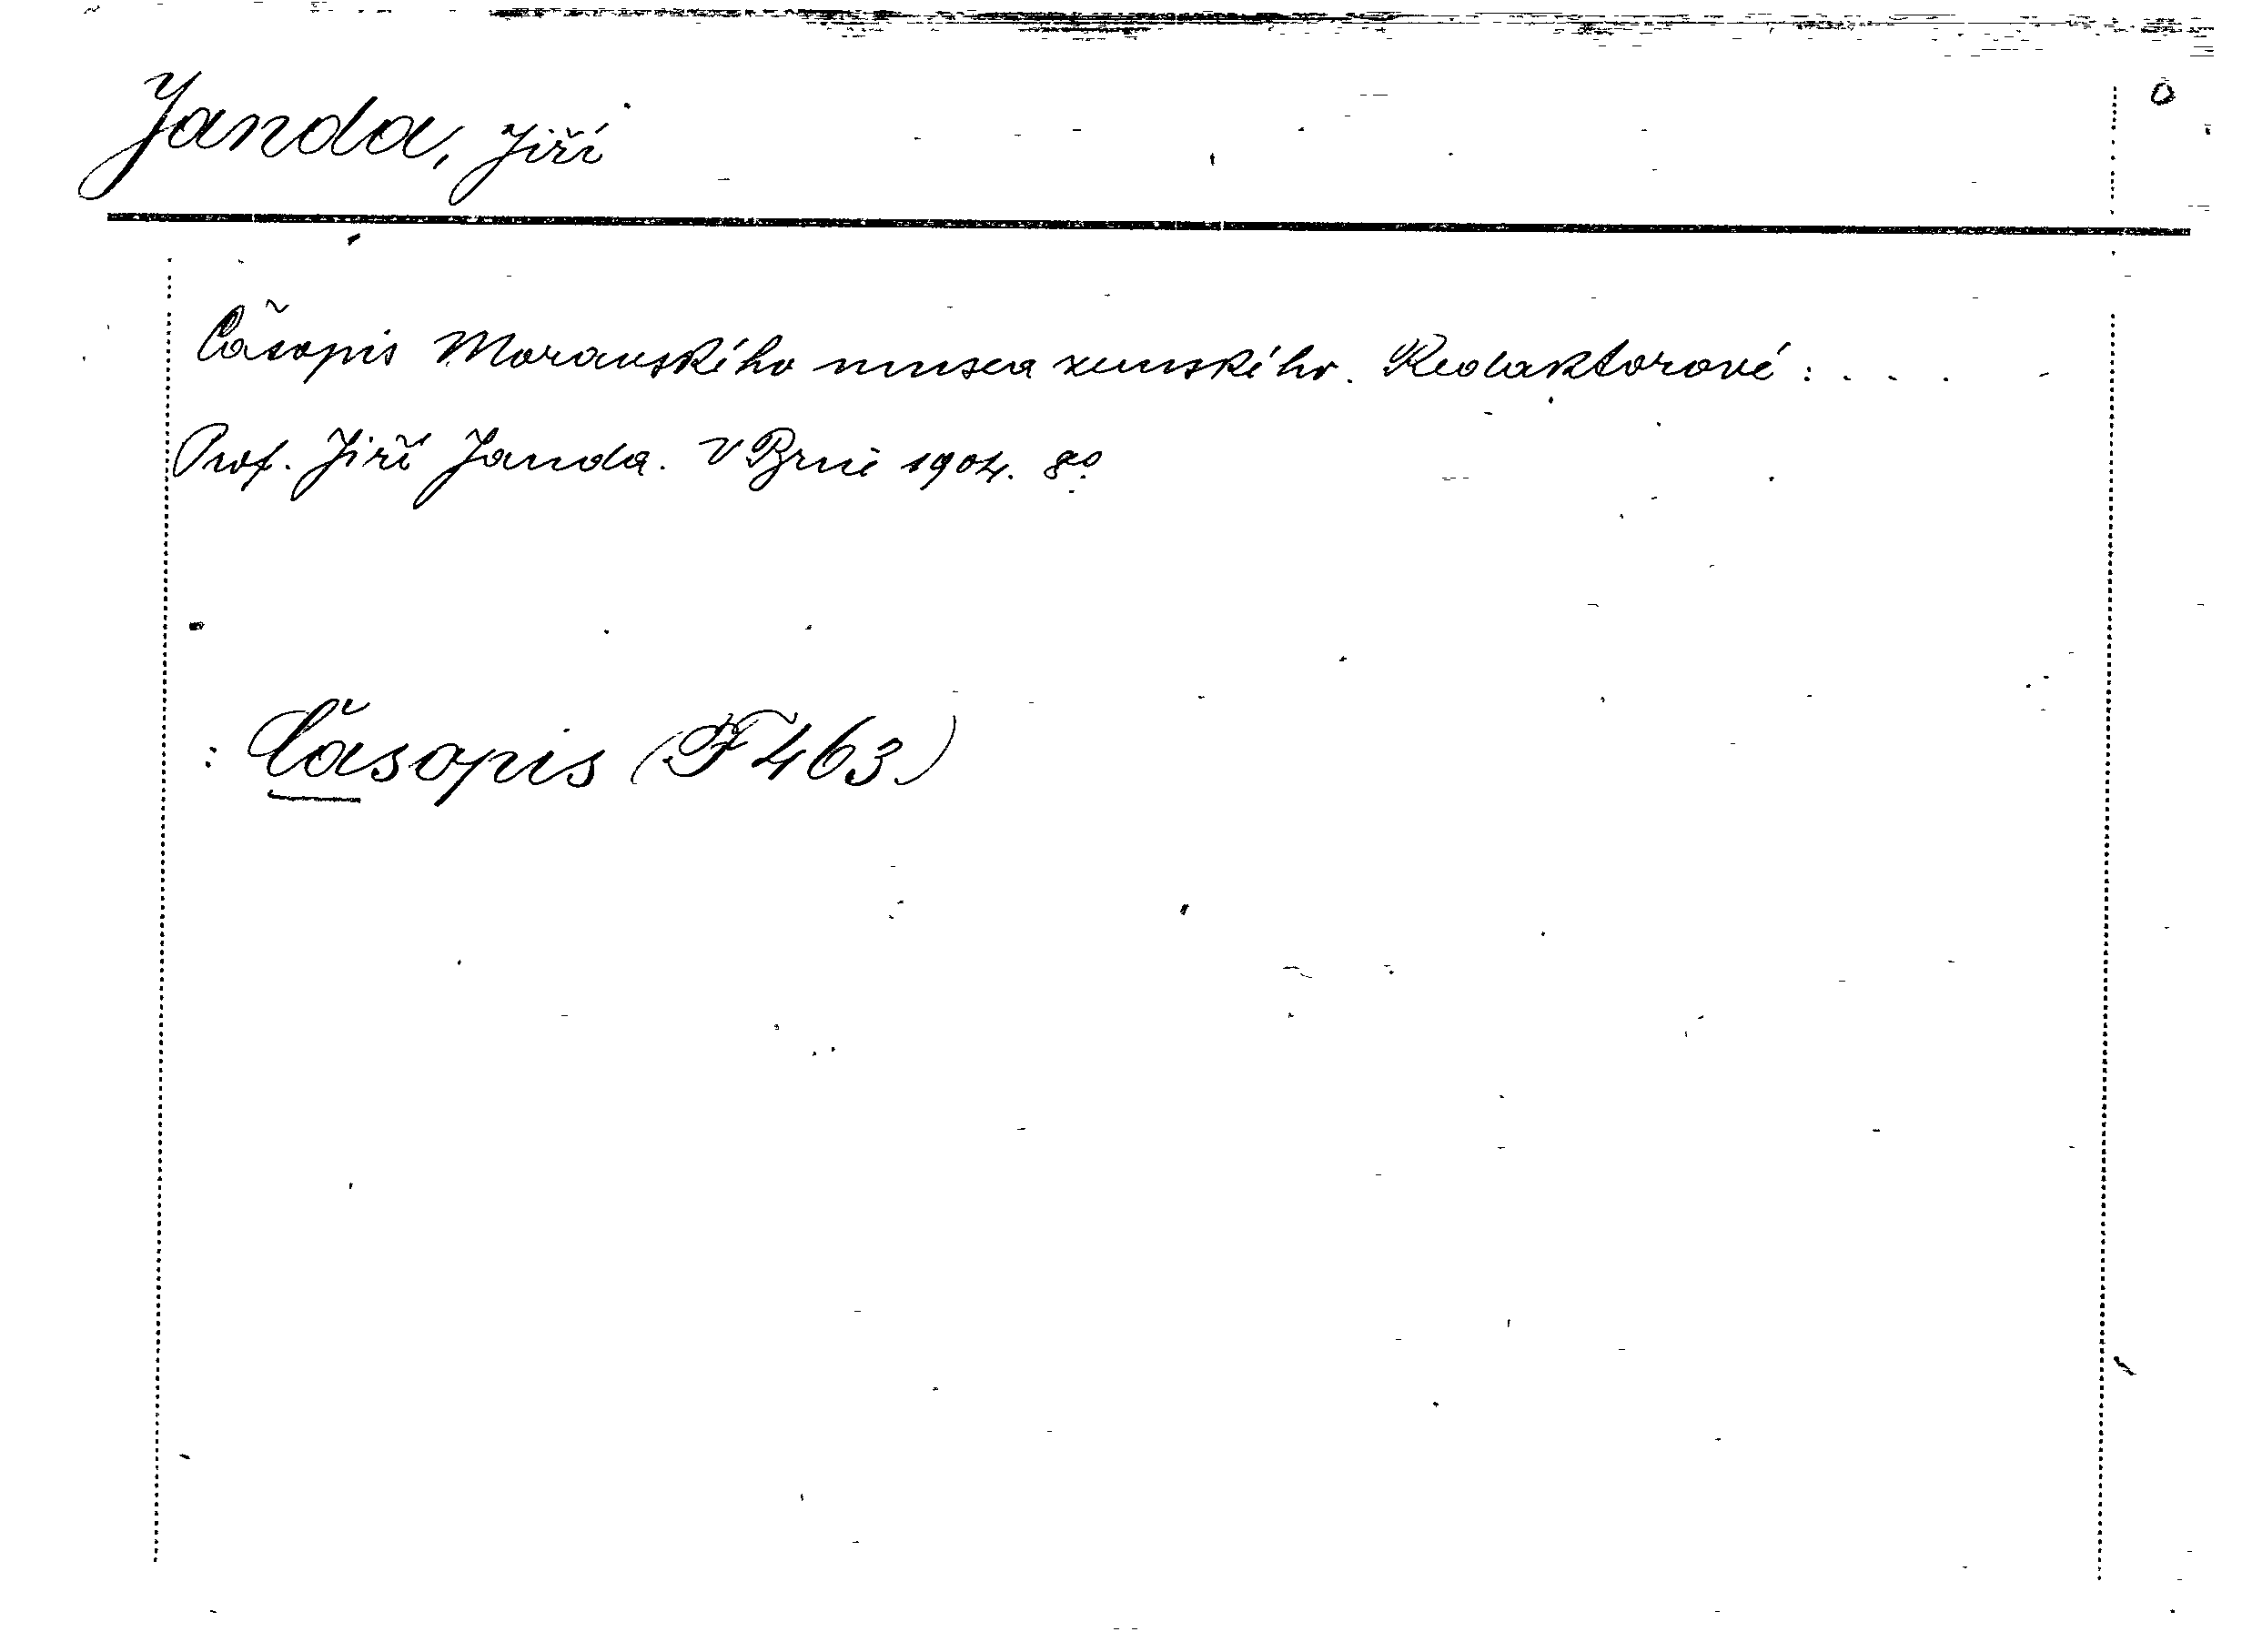 Janda, Jiří
Časopis Moravského musea zemského. Redaktorové: . . .
Prof. Jiří Janda. V Brně 1904. 8º
: Časopis (F 463)